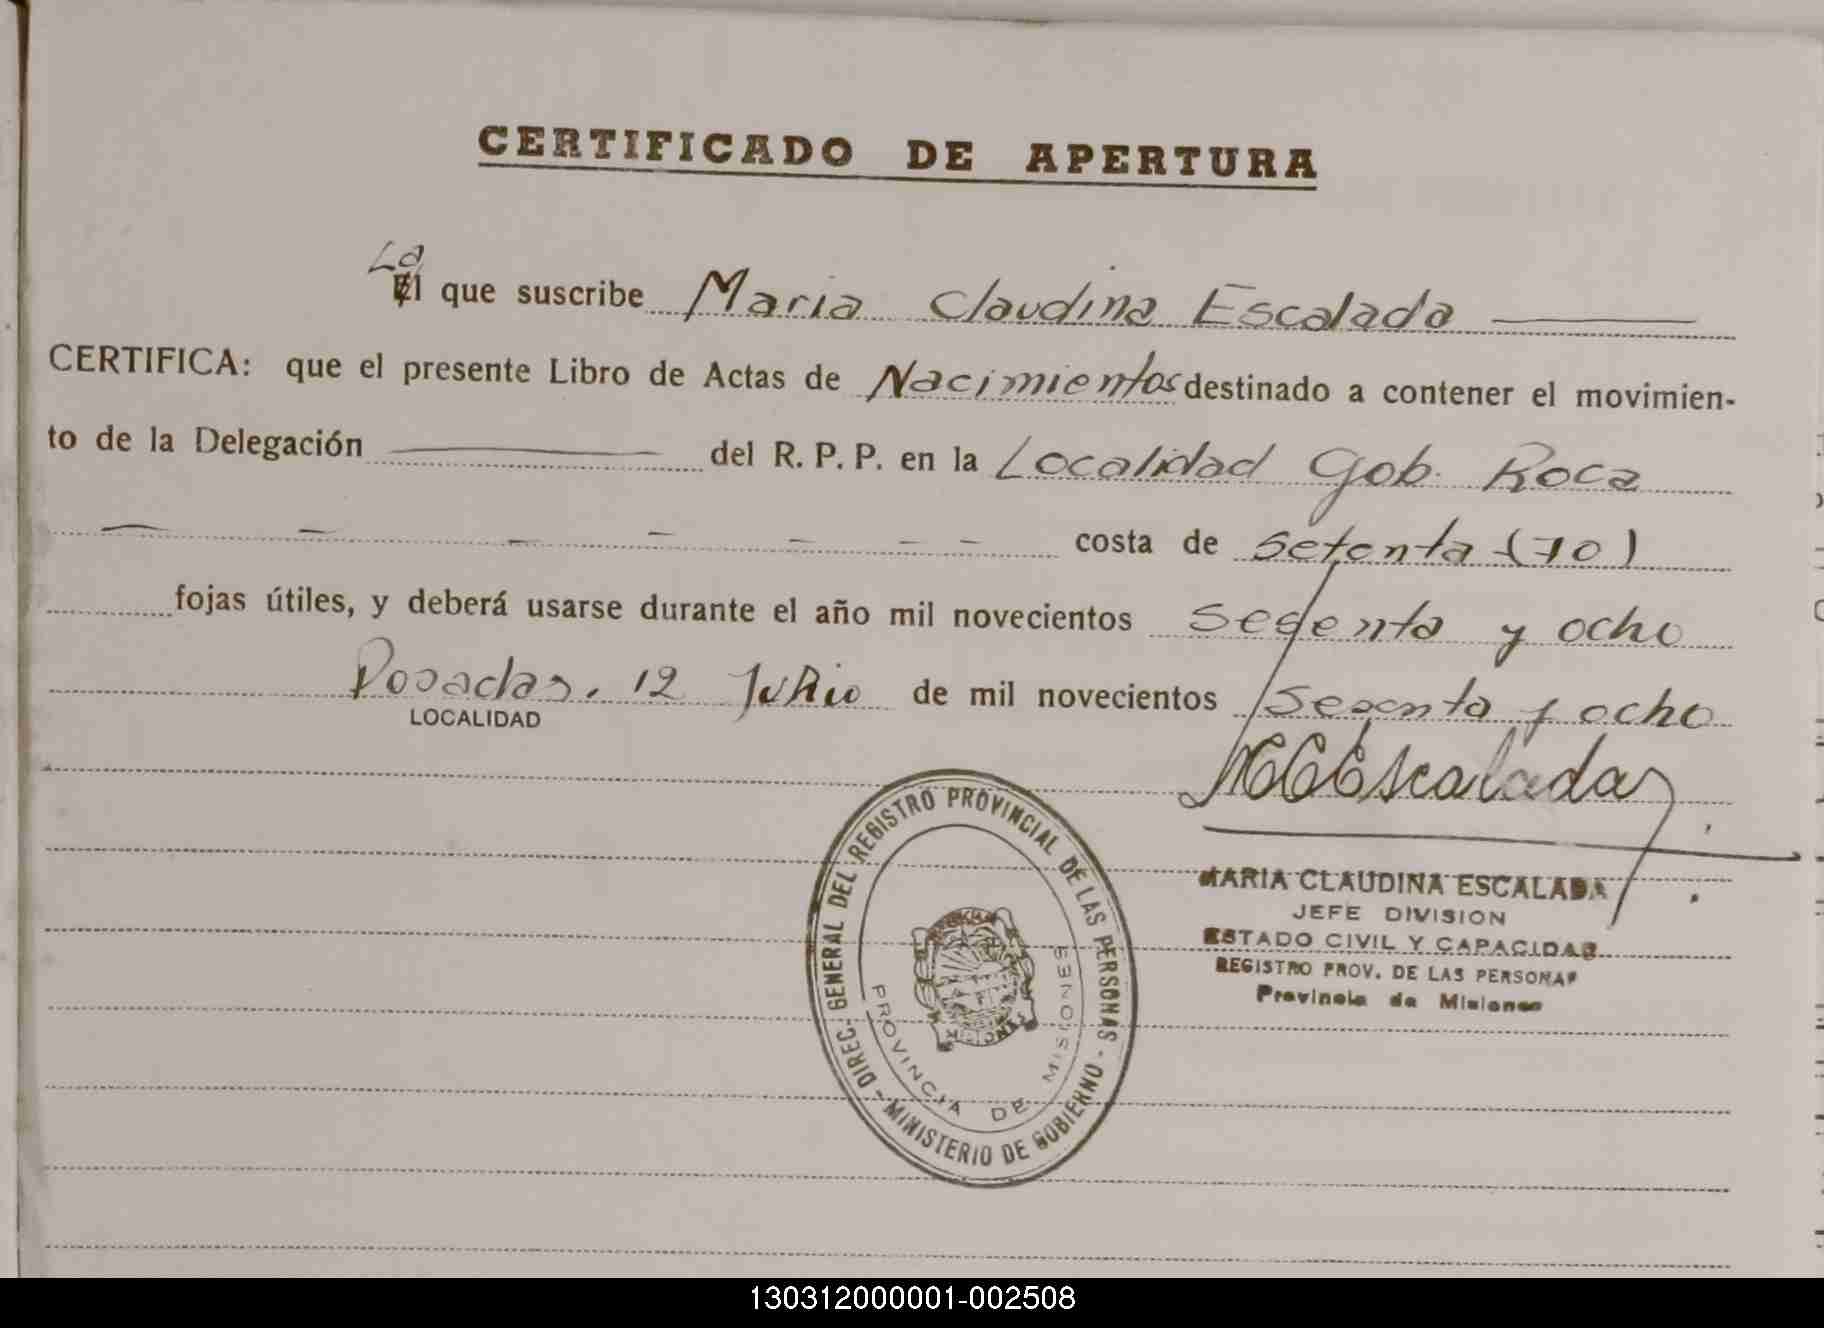 CERTIFICADO DE APERTURA
La
El que suscribe Maria Claudina Escalada
CERTIFICA: que el presente Libro de Actas de Nacimientos destinado a contener el movimien-
to de la Delegación del R. P. P. en la Localidad Gob. Roca
costa de setenta (70)
fojas útiles, y deberá usarse durante el año mil novecientos sesenta y ocho
Posadas, 12 Julio de mil novecientos sesenta y ocho
LOCALIDAD
MCEscalada
DIREC. GENERAL DEL REGISTRO PROVINCIAL DE LAS PERSONAS - MINISTERIO DE GOBIERNO -
PROVINCIA DE MISIONES
MISIONES
MARIA CLAUDINA ESCALADA
JEFE DIVISION
ESTADO CIVIL Y CAPACIDAD
REGISTRO PROV. DE LAS PERSONAS
Provincia de Misiones
130312000001-002508